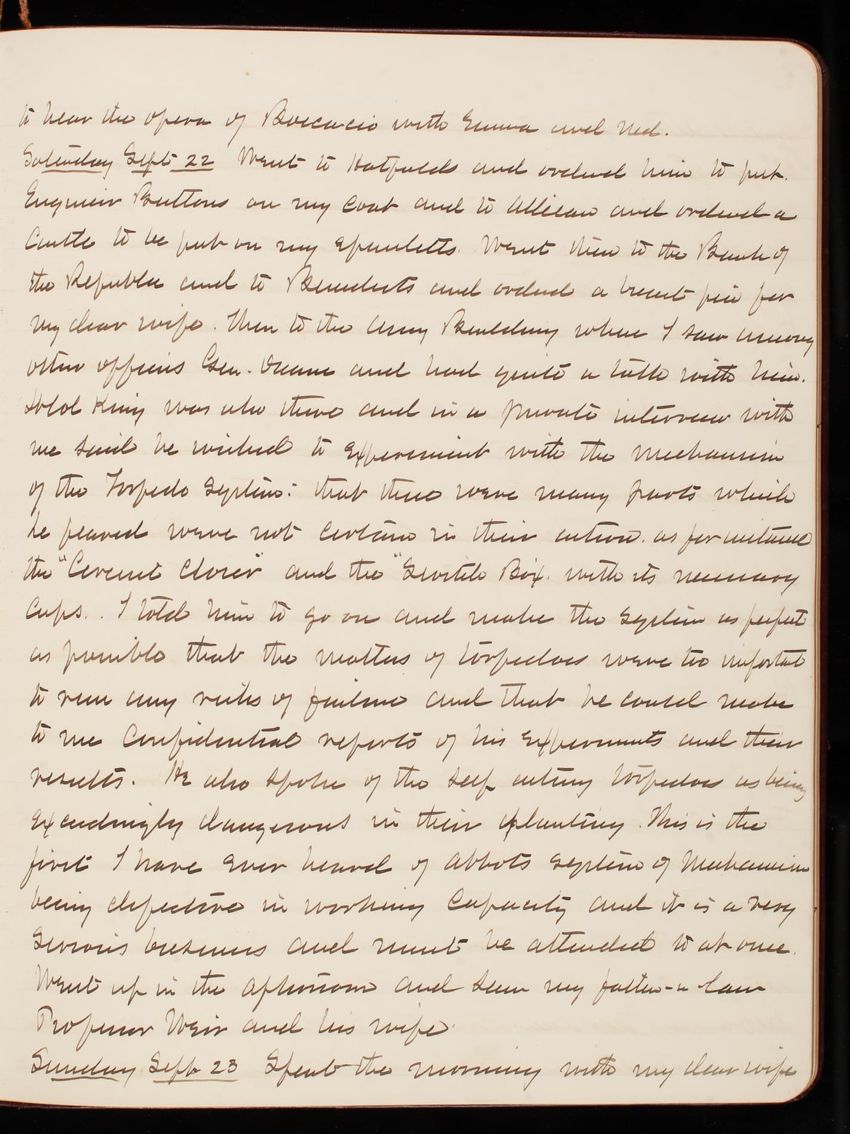 to hear the opera of Boccacio with Emma and Ned.
Saturday Sept 22 Went to Hatfields and ordered him to put
Engineer Buttons on my coat and to Allieau and ordered a
Castle to be put on my Epauletts. Went then to the Bank of
the Republic and to Benedicts and ordered a breast pin for
my dear wife. Then to the Army Building where I saw among
other officers Gen. Duane and had quite a talk with him.
Lt Col King was also there and in a private interview with
me said he wished to experiment with the mechanism
of the Torpedo System: that there were many parts which
he feared were not certain in their action. as for instance
the "Circuit Closer" and the "Switch Box. with its necessary
cups. . I told him to go on and make the system as perfect
as possible that the matters of torpedoes were too important
to run any risks of failure and that he could make
to me confidential reports of his experiments and their
results. He also spoke of the self acting torpedoes as being
exceedingly dangerous in their planting. This is the
first I have ever heard of Abbots system of mechanism
being defective in working capacity and it is a very
serious business and must be attended to at once.
Went up in the afternoon and seen my father-n law
Professor Weir and his wife.
Sunday Sept 23 Spent the morning with my dear wife